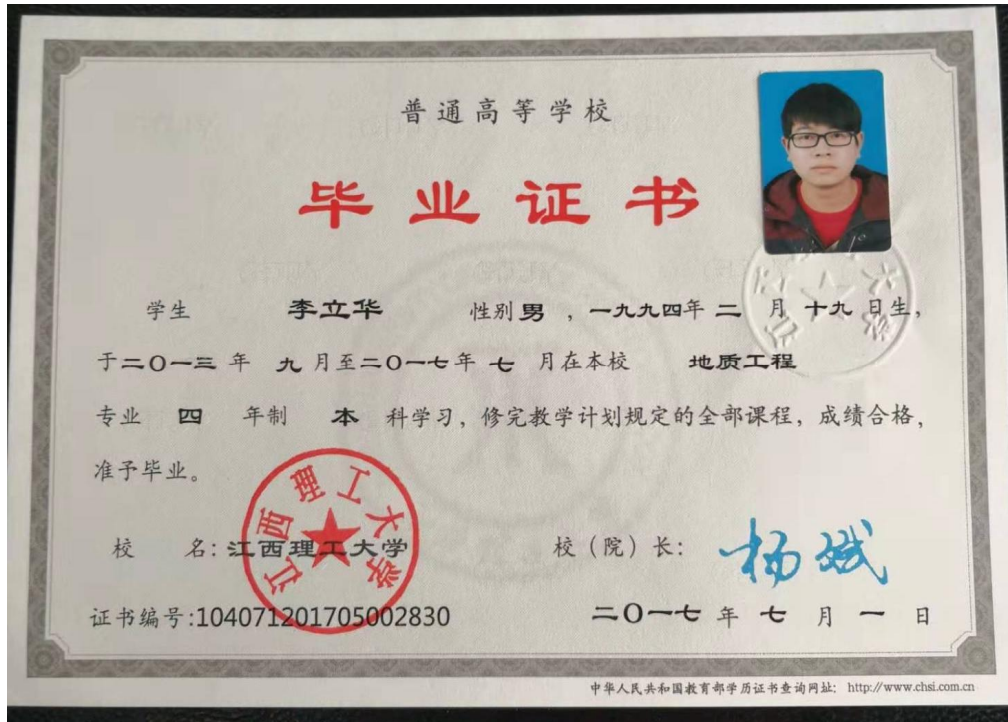 普通高等学校
毕业证书
学生 李立华 性别 男 ，一九九四年 二 月 十九 日生，
于二〇一三 年 九 月至二〇一七年 七 月在本校 地质工程
专业 四 年制 本 科学习，修完教学计划规定的全部课程，成绩合格，
准予毕业。
江西理工大学
校 名：江西理工大学 校（院）长：杨斌
证书编号:104071201705002830 二〇一七 年 七 月 一 日
中华人民共和国教育部学历证书查询网址： http://www.chsi.com.cn